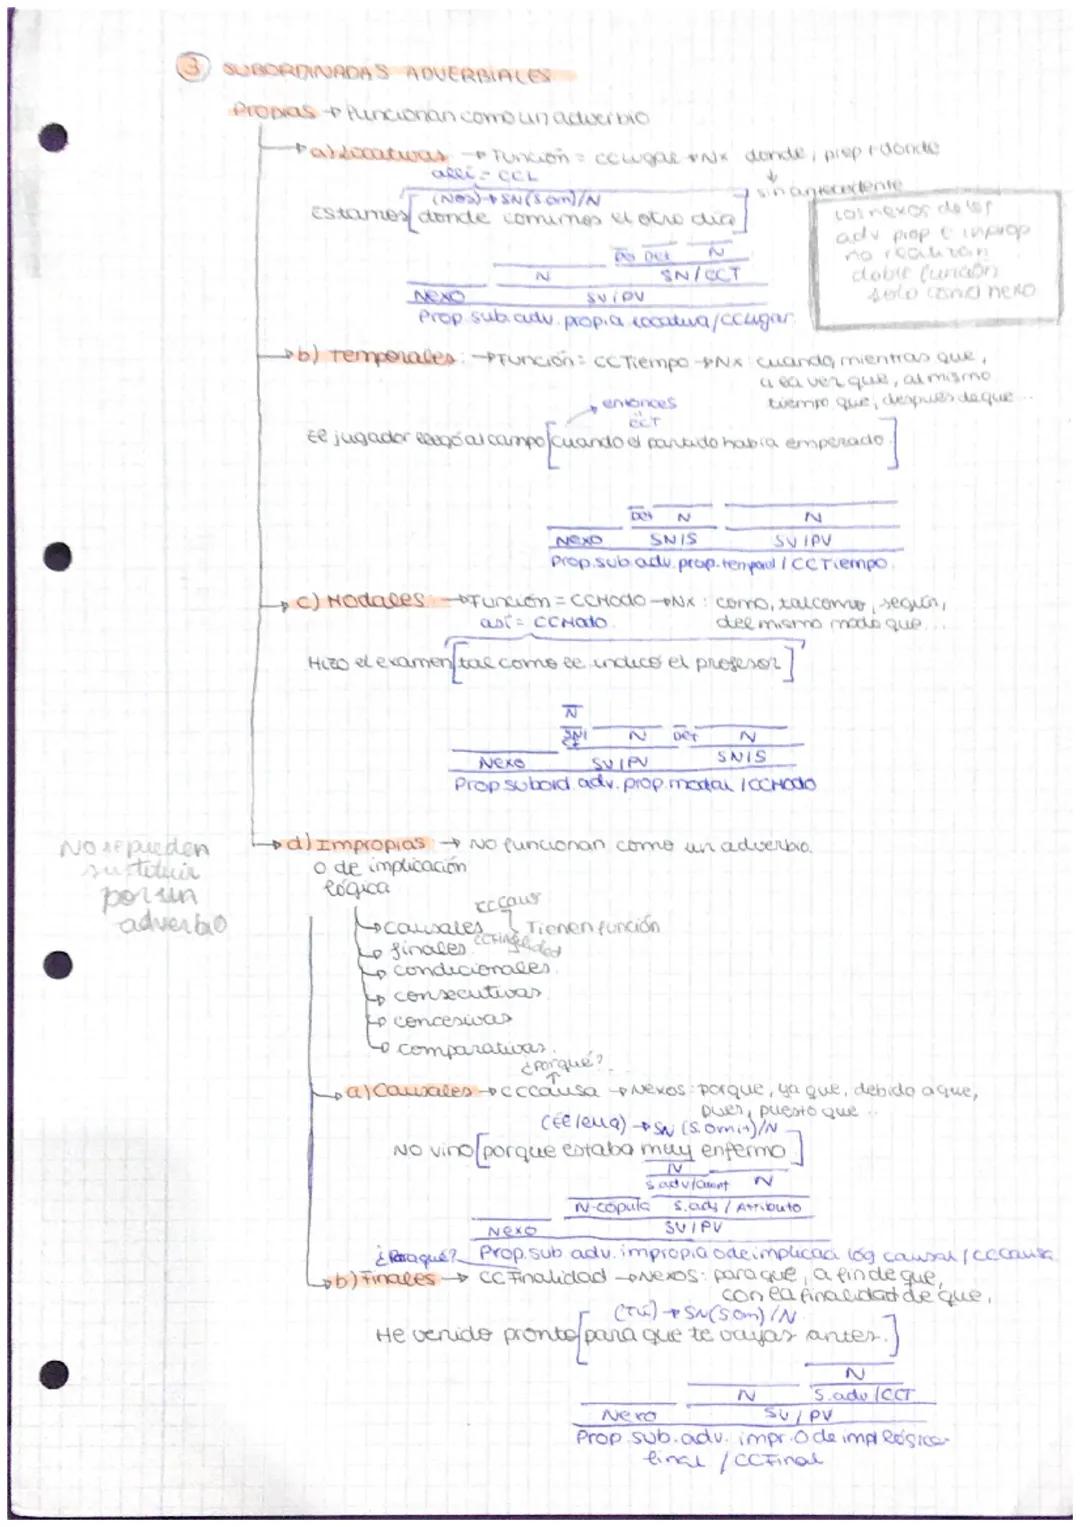 3 SUBORDINADAS ADVERBIALES
Propias → Funcionan como un adverbio
a) Locativas → Función = CCLugar → Nx donde, prep + donde
allí = CCL
sin antecedente
(Nos) → SN (S om)/N
Estamos [donde comimos el otro día]
Los nexos de las
adv prop e inprop
no realizan
doble función
solo como nexo
Det N
N SN/CCT
Nexo SV/PV
Prop. sub. adv. propia locativa/CCLugar.
b) Temporales: → Función = CCTiempo → Nx: cuando, mientras que,
a la vez que, al mismo
tiempo que, después de que...
entonces
CCT
El jugador llegó al campo [cuando el partido había empezado.]
Det N N
Nexo SN/S SV/PV
Prop. sub. adv. prop. temporal / CCTiempo.
c) Modales → Función = CCModo → Nx: como, tal como, según,
del mismo modo que...
así = CCModo.
Hizo el examen [tal como le indicó el profesor]
N
SN/ N Det N
Nexo SV/PV SN/S
Prop subord. adv. prop. modal / CCModo
d) Impropias → No funcionan como un adverbio.
o de implicación
lógica
No se pueden
sustituir
por un
adverbio
CCCaus
→ causales Tienen función
→ finales. CCFinalidad
→ condicionales.
→ consecutivas
→ concesivas
→ comparativas.
¿Porqué?
a) Causales → CCCausa → Nexos: porque, ya que, debido a que,
pues, puesto que...
(Él/ella) → SN (S. omit)/N
No vino [porque estaba muy enfermo]
N
S adv/ N
N-cópula S. adj / Atributo
Nexo SV/PV
Prop. sub adv. impropia o de implicaci lóg causal / CCCausa
¿Para qué?
b) Finales → CCFinalidad → Nexos: para que, a fin de que,
con la finalidad de que,
(Tú) → SN (S om) /N
He venido pronto [para que te vayas antes.]
N
N S. adv / CCT
Nexo SV / PV
Prop. sub. adv. impr. O de impl lógica
final / CCFinal